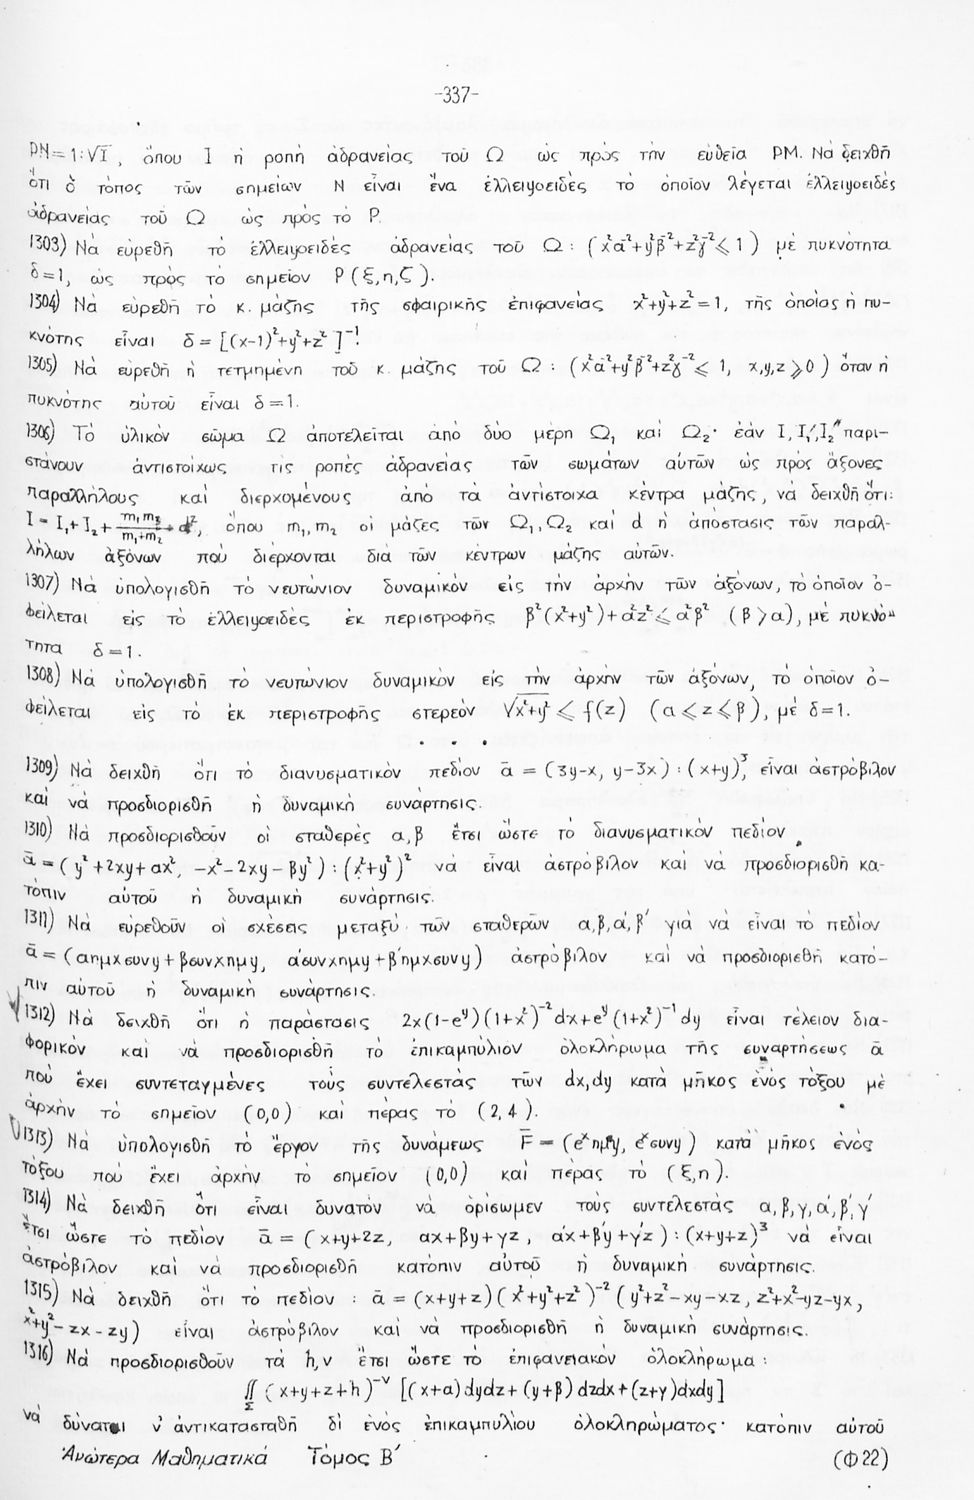 -337-
PN=1:√I, ὅπου I ἡ ροπή ἀδρανείας τοῦ Ω ὡς πρὸς τὴν εὐθεῖα PM. Νὰ δειχθῆ
ὅτι ὁ τόπος τῶν σημείων N εἶναι ἕνα ἐλλειψοειδές τὸ ὁποῖον λέγεται ἐλλειψοειδές
ἀδρανείας τοῦ Ω ὡς πρὸς τὸ P.
1303) Νὰ εὑρεθῆ τὸ ἐλλειψοειδὲς ἀδρανείας τοῦ Ω: (x²α⁻²+y²β⁻²+z²γ⁻²≤1) μὲ πυκνότητα
δ=1, ὡς πρὸς τὸ σημεῖον P(ξ,η,ζ).
1304) Νὰ εὑρεθῆ τὸ κ. μάζης τῆς σφαιρικῆς ἐπιφανείας x²+y²+z²=1, τῆς ὁποίας ἡ πυ-
κνότης εἶναι δ=[(x-1)²+y²+z²]⁻¹.
1305) Νὰ εὑρεθῆ ἡ τετμημένη τοῦ κ. μάζης τοῦ Ω: (x²α⁻²+y²β⁻²+z²γ⁻²≤1, x,y,z≥0) ὅταν ἡ
πυκνότης αὐτοῦ εἶναι δ=1.
1306) Τὸ ὑλικὸν σῶμα Ω ἀποτελεῖται ἀπὸ δύο μέρη Ω₁ καὶ Ω₂· ἐάν I, I₁', I₂" παρι-
στάνουν ἀντιστοίχως τὶς ροπὲς ἀδρανείας τῶν σωμάτων αὐτῶν ὡς πρὸς ἄξονες
παραλλήλους καὶ διερχομένους ἀπὸ τὰ ἀντίστοιχα κέντρα μάζης, νὰ δειχθῆ ὅτι:
I=I₁+I₂+ m₁m₂/(m₁+m₂) · d², ὅπου m₁,m₂ οἱ μάζες τῶν Ω₁,Ω₂ καὶ d ἡ ἀπόστασις τῶν παραλ-
λήλων ἀξόνων ποὺ διέρχονται διὰ τῶν κέντρων μάζης αὐτῶν.
1307) Νὰ ὑπολογισθῆ τὸ νευτώνιον δυναμικὸν εἰς τὴν ἀρχὴν τῶν ἀξόνων, τὸ ὁποῖον ὀ-
φείλεται εἰς τὸ ἐλλειψοειδὲς ἐκ περιστροφῆς β²(x²+y²)+α²z²≤α²β² (β>α), μὲ πυκνό-
τητα δ=1.
1308) Νὰ ὑπολογισθῆ τὸ νευτώνιον δυναμικὸν εἰς τὴν ἀρχὴν τῶν ἀξόνων, τὸ ὁποῖον ὀ-
φείλεται εἰς τὸ ἐκ περιστροφῆς στερεὸν √x²+y² ≤ f(z) (α≤z≤β), μὲ δ=1.
. . .
1309) Νὰ δειχθῆ ὅτι τὸ διανυσματικὸν πεδίον ᾱ=(3y-x, y-3x):(x+y)³, εἶναι ἀστρόβιλον
καὶ νὰ προσδιορισθῆ ἡ δυναμικὴ συνάρτησις.
1310) Νὰ προσδιορισθοῦν οἱ σταθερὲς α,β ἔτσι ὥστε τὸ διανυσματικὸν πεδίον
ᾱ=(y²+2xy+αx², -x²-2xy-βy²):(x²+y²)² νὰ εἶναι ἀστρόβιλον καὶ νὰ προσδιορισθῆ κα-
τόπιν αὐτοῦ ἡ δυναμικὴ συνάρτησις.
1311) Νὰ εὑρεθοῦν οἱ σχέσεις μεταξὺ τῶν σταθερῶν α,β,α',β' γιὰ νὰ εἶναι τὸ πεδίον
ᾱ=(αημxσυνy+βσυνxημy, α'συνxημy+β'ημxσυνy) ἀστρόβιλον καὶ νὰ προσδιορισθῆ κατό-
πιν αὐτοῦ ἡ δυναμικὴ συνάρτησις.
1312) Νὰ δειχθῆ ὅτι ἡ παράστασις 2x(1-eʸ)(1+x²)⁻²dx+eʸ(1+x²)⁻¹dy εἶναι τέλειον δια-
φορικὸν καὶ νὰ προσδιορισθῆ τὸ ἐπικαμπύλιον ὁλοκλήρωμα τῆς συναρτήσεως ᾱ
ποὺ ἔχει συντεταγμένες τοὺς συντελεστὰς τῶν dx,dy κατὰ μῆκος ἑνὸς τόξου μὲ
ἀρχὴν τὸ σημεῖον (0,0) καὶ πέρας τὸ (2,4).
1313) Νὰ ὑπολογισθῆ τὸ ἔργον τῆς δυνάμεως F̄=(eˣημy, eˣσυνy) κατὰ μῆκος ἑνὸς
τόξου ποὺ ἔχει ἀρχὴν τὸ σημεῖον (0,0) καὶ πέρας τὸ (ξ,η).
1314) Νὰ δειχθῆ ὅτι εἶναι δυνατὸν νὰ ὁρίσωμεν τοὺς συντελεστὰς α,β,γ,α',β',γ'
ἔτσι ὥστε τὸ πεδίον ᾱ=(x+y+2z, αx+βy+γz, α'x+β'y+γ'z):(x+y+z)³ νὰ εἶναι
ἀστρόβιλον καὶ νὰ προσδιορισθῆ κατόπιν αὐτοῦ ἡ δυναμικὴ συνάρτησις.
1315) Νὰ δειχθῆ ὅτι τὸ πεδίον: ᾱ=(x+y+z)(x²+y²+z²)⁻²(y²+z²-xy-xz, z²+x²-yz-yx,
x²+y²-zx-zy) εἶναι ἀστρόβιλον καὶ νὰ προσδιορισθῆ ἡ δυναμικὴ συνάρτησις.
1316) Νὰ προσδιορισθοῦν τὰ h,ν ἔτσι ὥστε τὸ ἐπιφανειακὸν ὁλοκλήρωμα:
∬_Σ (x+y+z+h)⁻ᵛ[(x+α)dydz+(y+β)dzdx+(z+γ)dxdy]
νὰ δύναται ν' ἀντικατασταθῆ δι' ἑνὸς ἐπικαμπυλίου ὁλοκληρώματος· κατόπιν αὐτοῦ
Ἀνώτερα Μαθηματικά Τόμος Β' (Φ22)